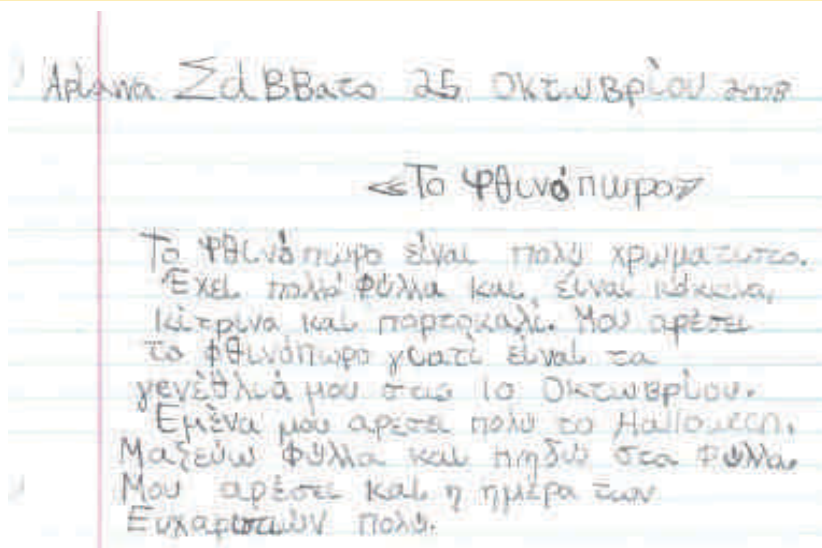 Αριάνα Σάββατο 25 Οκτωβρίου 2008
«Το Φθινόπωρο»
Το Φθινόπωρο είναι πολύ χρωματιστο.
Έχει πολύ φύλλα και είναι κόκκινα,
κίτρινα και πορτοκαλί. Μου αρέσει
το φθινόπωρο γιατί είναι τα
γενέθλιά μου στις 10 Οκτωβρίου.
Εμένα μου αρεσει πολύ το Halloween.
Μαζεύω φύλλα και πηδώ στα φύλλα.
Μου αρέσει και η ημέρα των
Ευχαριστιών πολύ.